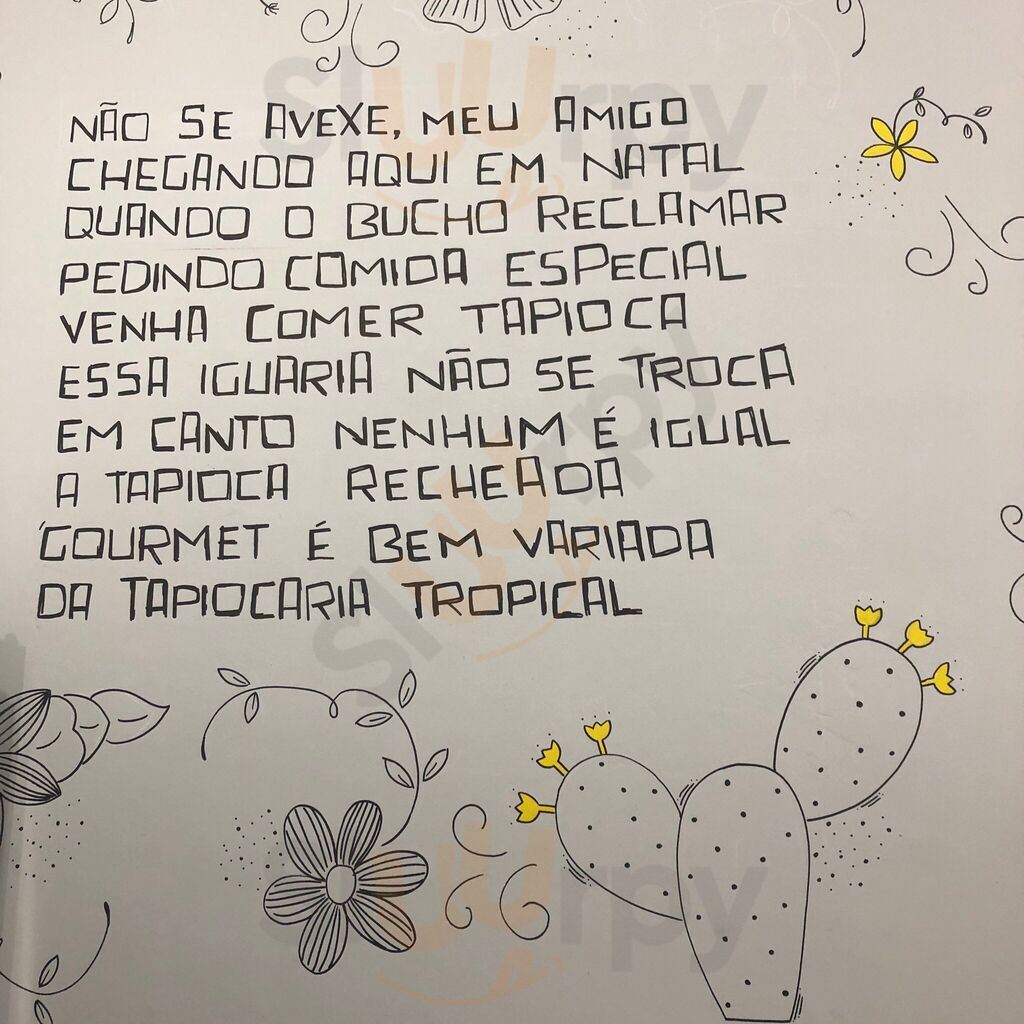 NÃO SE AVEXE, MEU AMIGO
CHEGANDO AQUI EM NATAL
QUANDO O BUCHO RECLAMAR
PEDINDO COMIDA ESPECIAL
VENHA COMER TAPIOCA
ESSA IGUARIA NÃO SE TROCA
EM CANTO NENHUM É IGUAL
A TAPIOCA RECHEADA
'GOURMET É BEM VARIADA
DA TAPIOCARIA TROPICAL
slUurpy
slUurpy
slUurpy